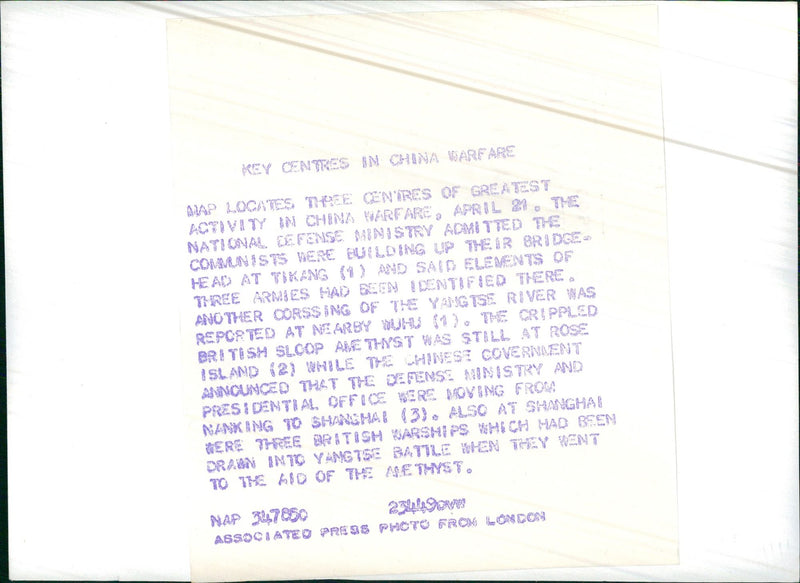 KEY CENTRES IN CHINA WARFARE
MAP LOCATES THREE CENTRES OF GREATEST
ACTIVITY IN CHINA WARFARE, APRIL 21. THE
NATIONAL DEFENSE MINISTRY ADMITTED THE
COMMUNISTS WERE BUILDING UP THEIR BRIDGE-
HEAD AT TIKANG (1) AND SAID ELEMENTS OF
THREE ARMIES HAD BEEN IDENTIFIED THERE.
ANOTHER CORSSING OF THE YANGTSE RIVER WAS
REPORTED AT NEARBY WUHU (1). THE CRIPPLED
BRITISH SLOOP AMETHYST WAS STILL AT ROSE
ISLAND (2) WHILE THE CHINESE GOVERNMENT
ANNOUNCED THAT THE DEFENSE MINISTRY AND
PRESIDENTIAL OFFICE WERE MOVING FROM
NANKING TO SHANGHAI (3). ALSO AT SHANGHAI
WERE THREE BRITISH WARSHIPS WHICH HAD BEEN
DRAWN INTO YANGTSE BATTLE WHEN THEY WENT
TO THE AID OF THE AMETHYST.
NAP 347850 23449DVW
ASSOCIATED PRESS PHOTO FROM LONDON